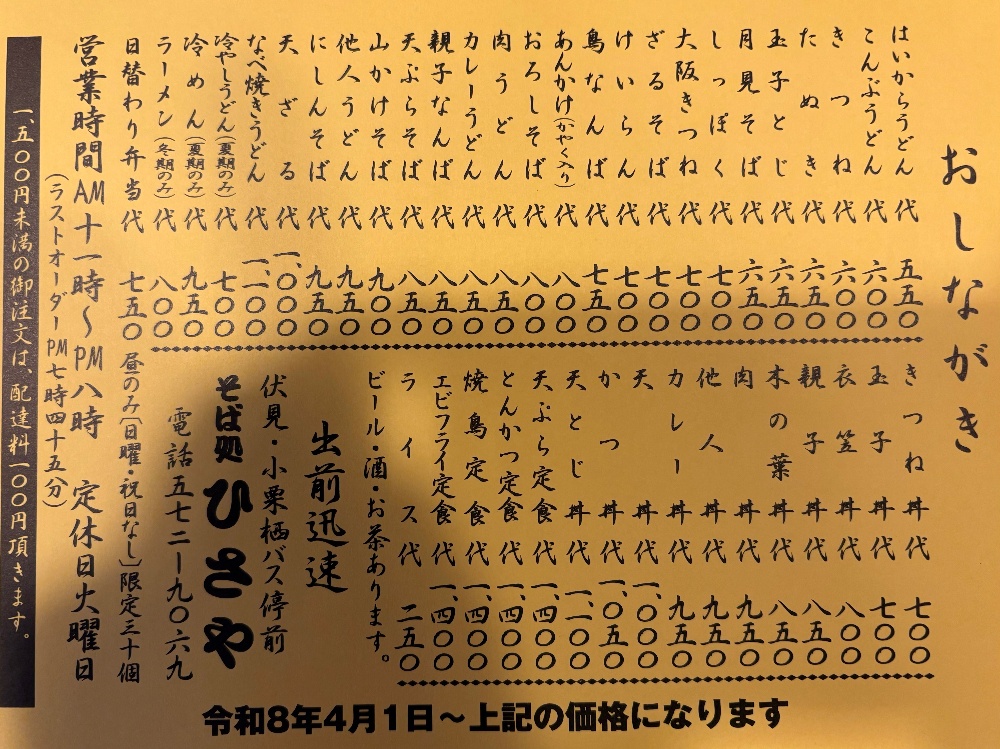 おしながき
はいからうどん代 五五〇
こんぶうどん代 六〇〇
きつね代 六〇〇
たぬき代 六五〇
玉子とじ代 六五〇
月見そば代 六五〇
しっぽく代 七〇〇
大阪きつね代 七〇〇
ざるそば代 七〇〇
けいらん代 七〇〇
鳥なんば代 七五〇
あんかけ(かやく入り)代 八〇〇
おろしそば代 八〇〇
肉うどん代 八五〇
カレーうどん代 八五〇
親子なんば代 八五〇
天ぷらそば代 八五〇
山かけそば代 九〇〇
他人うどん代 九五〇
にしんそば代 九五〇
天ざる代 一、〇〇〇
なべ焼きうどん代 一、一〇〇
冷やしうどん(夏期のみ)代 七〇〇
冷めん(夏期のみ)代 九五〇
ラーメン(冬期のみ)代 八〇〇
日替わり弁当代 七五〇 昼のみ〔日曜・祝日なし〕限定三十個
きつね丼代 七〇〇
玉子丼代 七〇〇
衣笠丼代 八〇〇
親子丼代 八五〇
木の葉丼代 八五〇
肉丼代 九五〇
他人丼代 九五〇
カレー丼代 九五〇
天丼代 一、〇〇〇
かつ丼代 一、〇五〇
天とじ丼代 一、一〇〇
天ぷら定食代 一、四〇〇
とんかつ定食代 一、四〇〇
焼鳥定食代 一、四〇〇
エビフライ定食代 一、四〇〇
ライス代 二五〇
ビール・酒・お茶あります。
出前迅速
伏見・小栗栖バス停前
そば処 ひさや
電話五七二ー九〇六九
営業時間AM十一時〜PM八時 定休日火曜日
(ラストオーダーPM七時四十五分)
一、五〇〇円未満の御注文は、配達料一〇〇円頂きます。
令和8年4月1日〜上記の価格になります